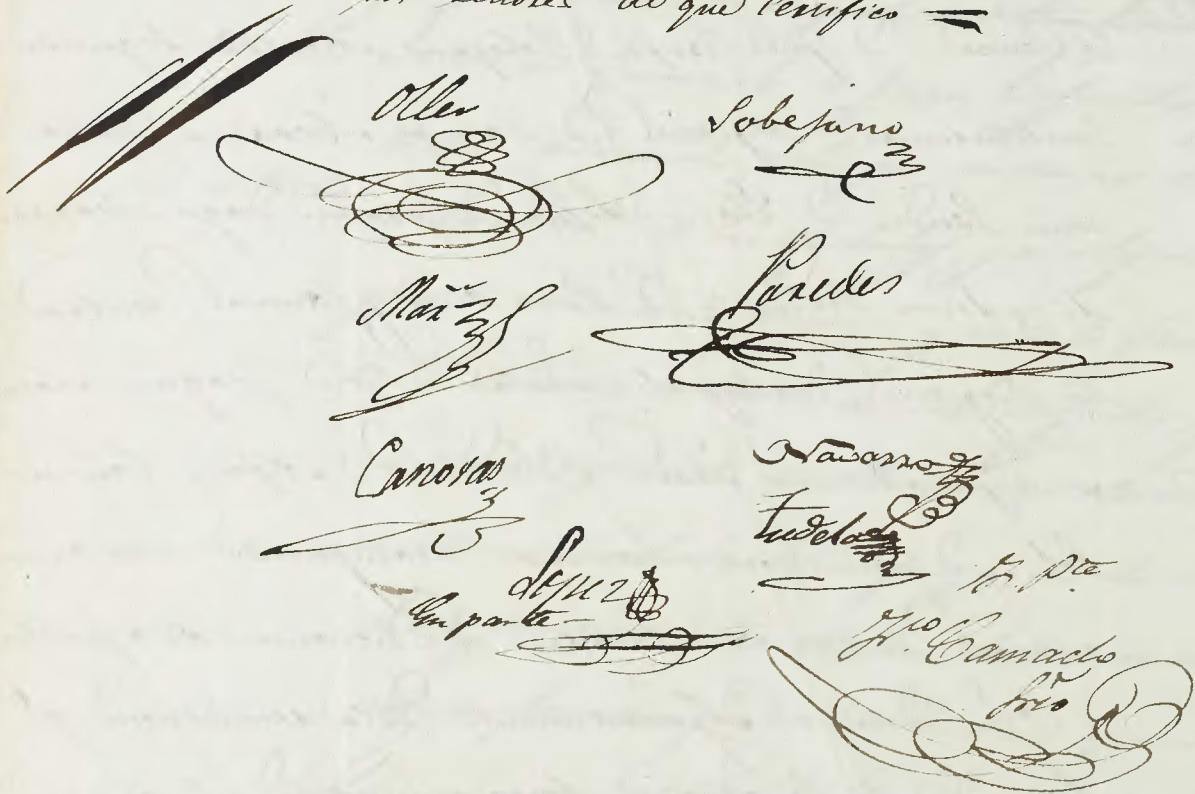 Señores de que Certifico
Oller
Sobejano
Mañz
Paredes
Canovas
Navarro
Tudela
Lopez
En parte
Camacho
Srio